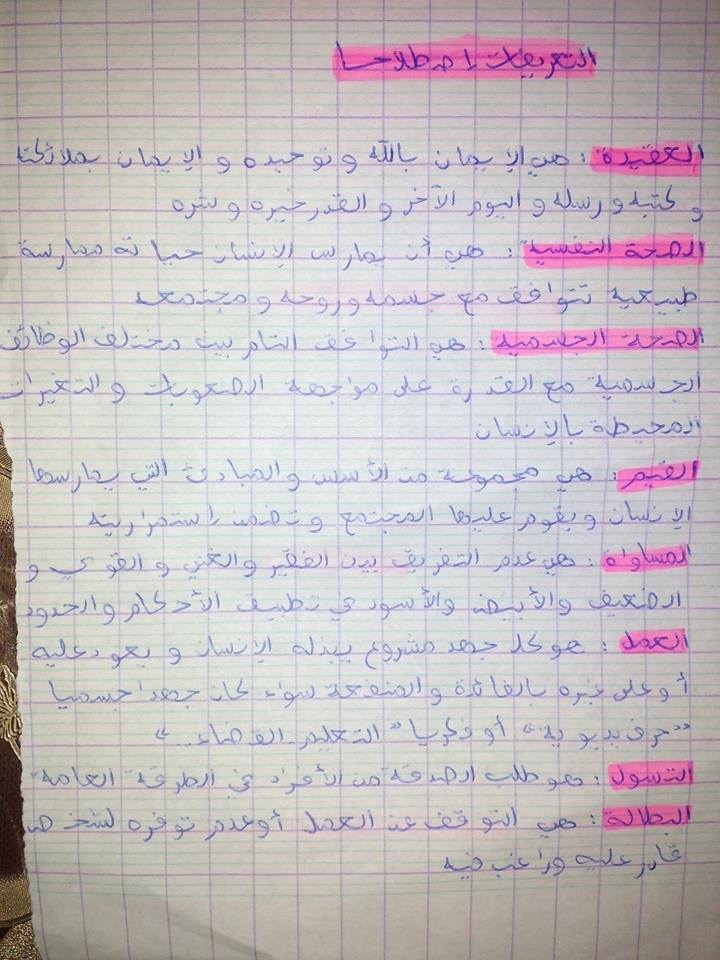 التعريفات إصطلاحا
العقيدة : هي الإيمان بالله وتوحيده و الإيمان بملائكته
و كتبه ورسله و اليوم الآخر و القدر خيره و شره
الصحة النفسية : هي أن يمارس الإنسان حياته ممارسة
طبيعية تتوافق مع جسمه وروحه و مجتمعه
الصحة الجسمية : هي التوافق التام بين مختلف الوظائف
الجسمية مع القدرة على مواجهة الصعوبات و التغيرات
المحيطة بالإنسان
القيم : هي مجموعة من الأسس والمبادئ التي يمارسها
الإنسان ويقوم عليها المجتمع وتضمن إستمراريته
المساواة : هي عدم التفريق بين الفقير والغني و القوي و
الضعيف والأبيض والأسود في تطبيق الأحكام والحدود
العمل : هو كل جهد مشروع يبذله الإنسان و يعود عليه
أو على غيره بالفائدة والمنفعة سواء كان جهدا جسميا
"حرف يدوية" أو فكريا "التعليم القضاء.."
التسول : هو طلب الصدقة من الأفراد في الطرقة العامة
البطالة : هي التوقف عن العمل أو عدم توفره لشخص
قادر عليه وراغب فيه